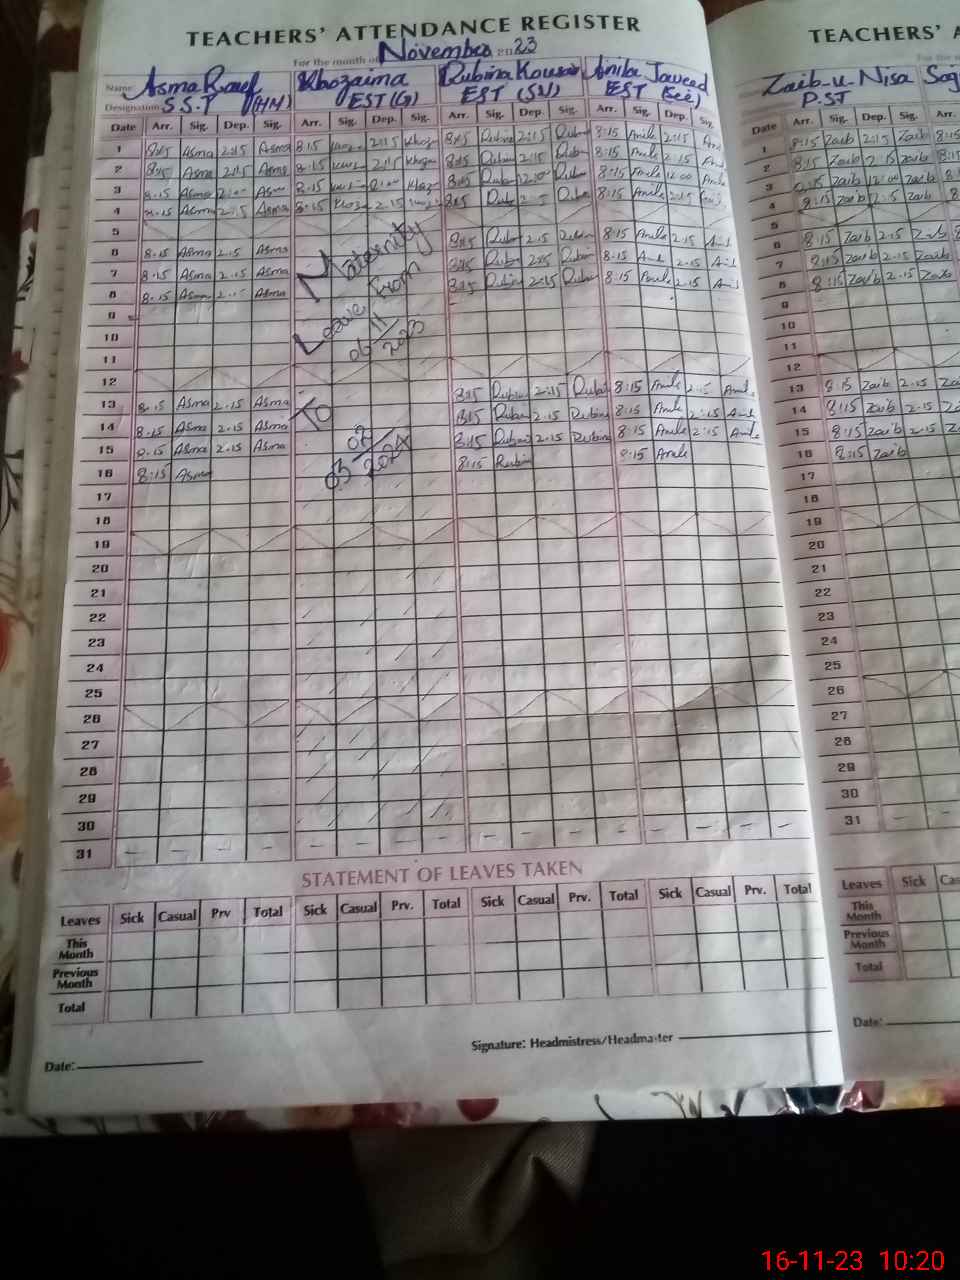 TEACHERS' ATTENDANCE REGISTER
For the month of November 2023
Name Asma Rauf Khozaima Rubina Kousar Anila Javeed
Designation S.S.T (HM) EST(G) EST (SV) EST (Sci)
Date Arr. Sig. Dep. Sig. Arr. Sig. Dep. Sig. Arr. Sig. Dep. Sig. Arr. Sig. Dep. Sig.
1 8:15 Asma 2:15 Asma 8:15 2:15 Khoz 8:15 Rubina 2:15 Rubin 8:15 Anila 2:15
2 8:15 Asma 2:15 Asma 8:15 2:15 8:15 Rubin 2:15 Rubin 8:15 Anila 2:15
3 8:15 Asma 8:15 8:15 Rubin 12:00 Rubin 8:15 Anila 12:00
4 8:15 Asma 2:15 Asma 8:15 Khoza 2:15 8:15 8:15 Anila 2:15
5
6 8:15 Asma 2:15 Asma 8:15 Rubin 2:15 Rubin 8:15 Anila 2:15
7 8:15 Asma 2:15 Asma 8:15 Rubin 2:15 Rubin 8:15 2:15
8 8:15 Asma 2:15 Asma 8:15 Rubin 2:15 Rubin 8:15 Anila 2:15
Maternity
Leave From
06/11/2023
To
03/02/2024
9
10
11
12
13 8:15 Asma 2:15 Asma 8:15 Rubin 2:15 Rubin 8:15 Anila 2:15 Anila
14 8:15 Asma 2:15 Asma 8:15 Rubin 2:15 Rubina 8:15 Anila 2:15 Anila
15 8:15 Asma 2:15 Asma 8:15 Rubina 2:15 Rubina 8:15 Anila 2:15 Anila
16 8:15 Asma 8:15 Rubin 8:15 Anila
17
18
19
20
21
22
23
24
25
26
27
28
29
30
31
STATEMENT OF LEAVES TAKEN
Leaves Sick Casual Prv Total Sick Casual Prv. Total Sick Casual Prv. Total Sick Casual Prv. Total
This Month
Previous Month
Total
Date:
Signature: Headmistress/Headmaster
TEACHERS'
Zaib-u-Nisa
P.ST
Date Arr. Sig. Dep. Sig. Arr.
1 8:15 Zaib 2:15 Zaib 8:15
2 8:15 Zaib 2:15 Zaib 8:15
3 8:15 Zaib 12:00 Zaib
4 8:15 Zaib 2:15 Zaib
5
6 8:15 Zaib 2:15 Zaib
7 8:15 Zaib 2:15 Zaib
8 8:15 Zaib 2:15 Zaib
9
10
11
12
13 8:15 Zaib 2:15 Zaib
14 8:15 Zaib 2:15
15 8:15 Zaib 2:15
16 8:15 Zaib
17
18
19
20
21
22
23
24
25
26
27
28
29
30
31
Leaves Sick
This Month
Previous Month
Total
Date:
16-11-23 10:20